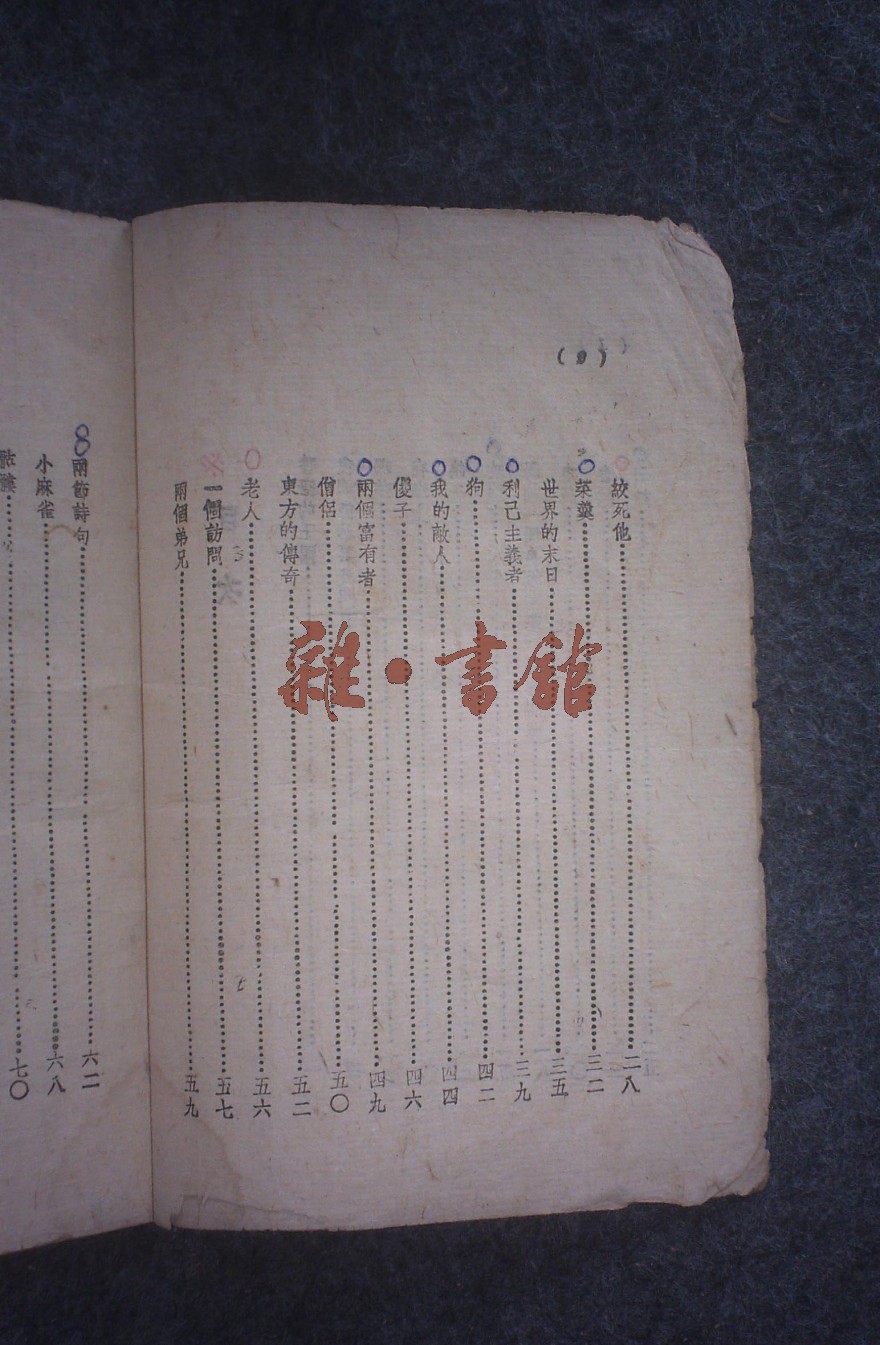 (9)
故死他……二八
菜羹……三二
世界的末日……三五
利己主義者……三九
狗……四二
我的敵人……四四
傻子……四六
兩個富有者……四九
僧侶……五〇
東方的傳奇……五二
老人……五六
一個訪問……五七
兩個弟兄……五九
兩節詩句……六二
小麻雀……六八
骷髏……七〇
雜·書館